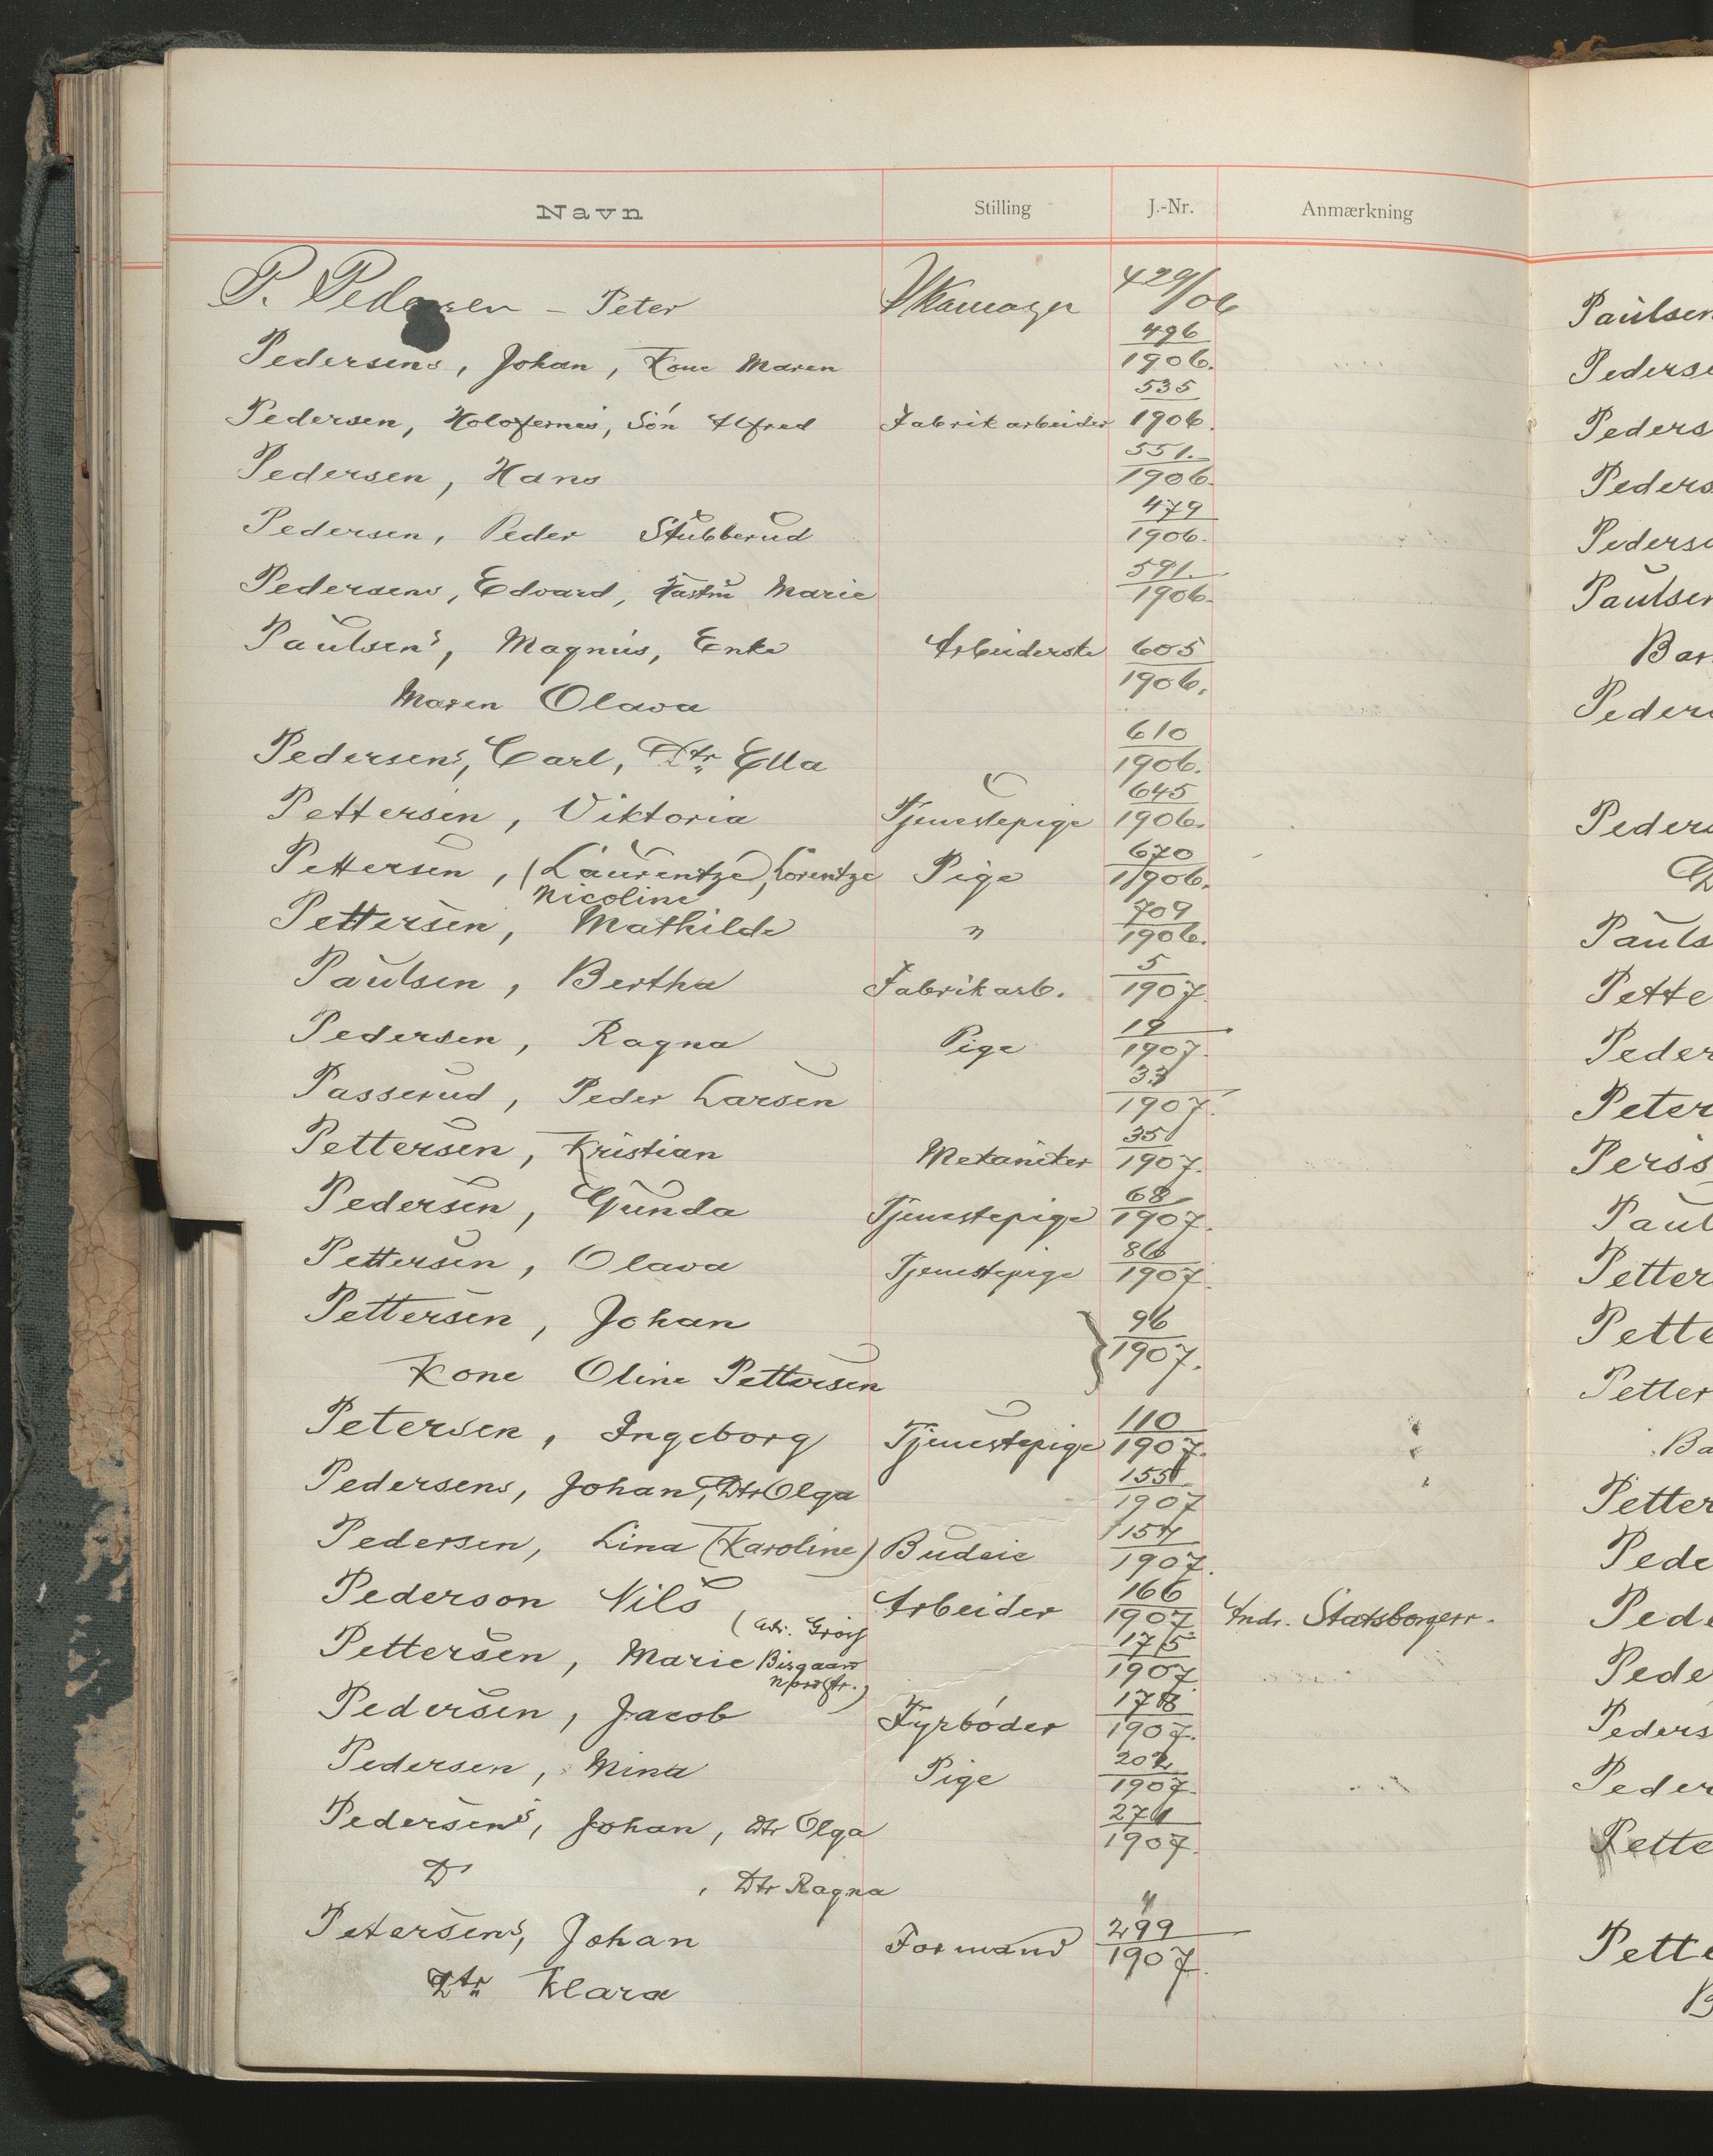 Navn Stilling J.-Nr. Anmærkning
P. Pedersen - Peter Skomager 429/06
Pedersens, Johan, Kone Maren 496/1906.
Pedersen, Holofernes, Sön Alfred Fabrikarbeider 535/1906.
Pedersen, Hans 551./1906.
Pedersen, Peder Stubberud 479/1906.
Pedersens, Edvard, Hustru Marie 591./1906.
Paulsen's, Magnus, Enke Arbeiderske 605/1906.
Maren Olava
Pedersens, Carl, Dtr. Ella 610/1906.
Pettersen, Viktoria Tjenestepige 645/1906.
Pettersen, (Laurentze), Lorentze Pige 670/1906.
Nicoline
Pettersen, Mathilde " 709/1906.
Paulsen, Bertha Fabrikarb. 5/1907.
Pedersen, Ragna Pige 19/1907.
Passerud, Peder Larsen 33/1907.
Pettersen, Kristian Mekaniker 35/1907.
Pedersen, Gunda Tjenestepige 68/1907.
Pettersen, Olava Tjenestepige 86/1907.
Pettersen, Johan } 96/1907.
Kone Oline Pettersen
Petersen, Ingeborg Tjenestepige 110/1907.
Pedersens, Johan, Dtr Olga 155/1907
Pedersen, Lina (Karoline) Budeie 154/1907.
Pederson Nils Arbeider 166/1907 Andr. Statsborgerr.
(adr.
Pettersen, Marie Bisgaard 175/1907.
Pedersen, Jacob Fyrböder 178/1907.
Pedersen, Mina Pige 202/1907.
Pedersens, Johan, Dtr Olga 271/1907.
Do , Dtr Ragna
Petersens, Johan Formand 299/1907.
Dtr. Klara
Paulsen
Pederse
Peders
Peders
Pederse
Paulsen
Bar
Peders
Peders
D
Pauls
Pette
Peder
Peter
Perss
Paul
Petter
Pette
Petter
Ba
Petter
Pede
Pede
Pede
Peders
Peder
Pette
Pette
B